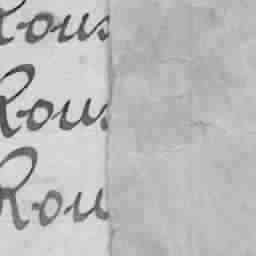 Rous
Rous
Rou